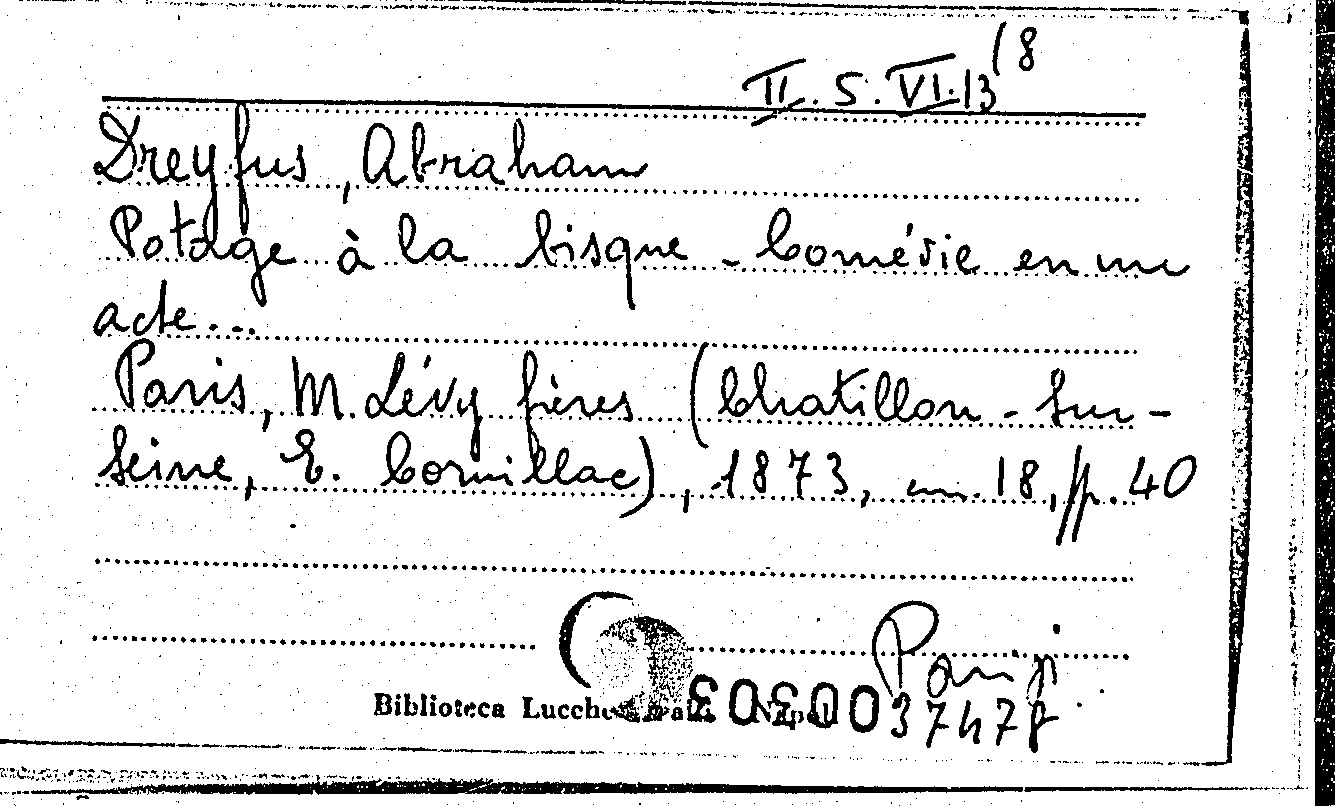 II. 5. VI. 13 (8
Dreyfus, Abraham
Potage à la bisque - Comédie en un
acte...
Paris, M. Lévy frères (Chatillon-sur-
Seine, E. Cornillac), 1873, in. 18, pp. 40
Biblioteca Lucchesi Napoli
37478